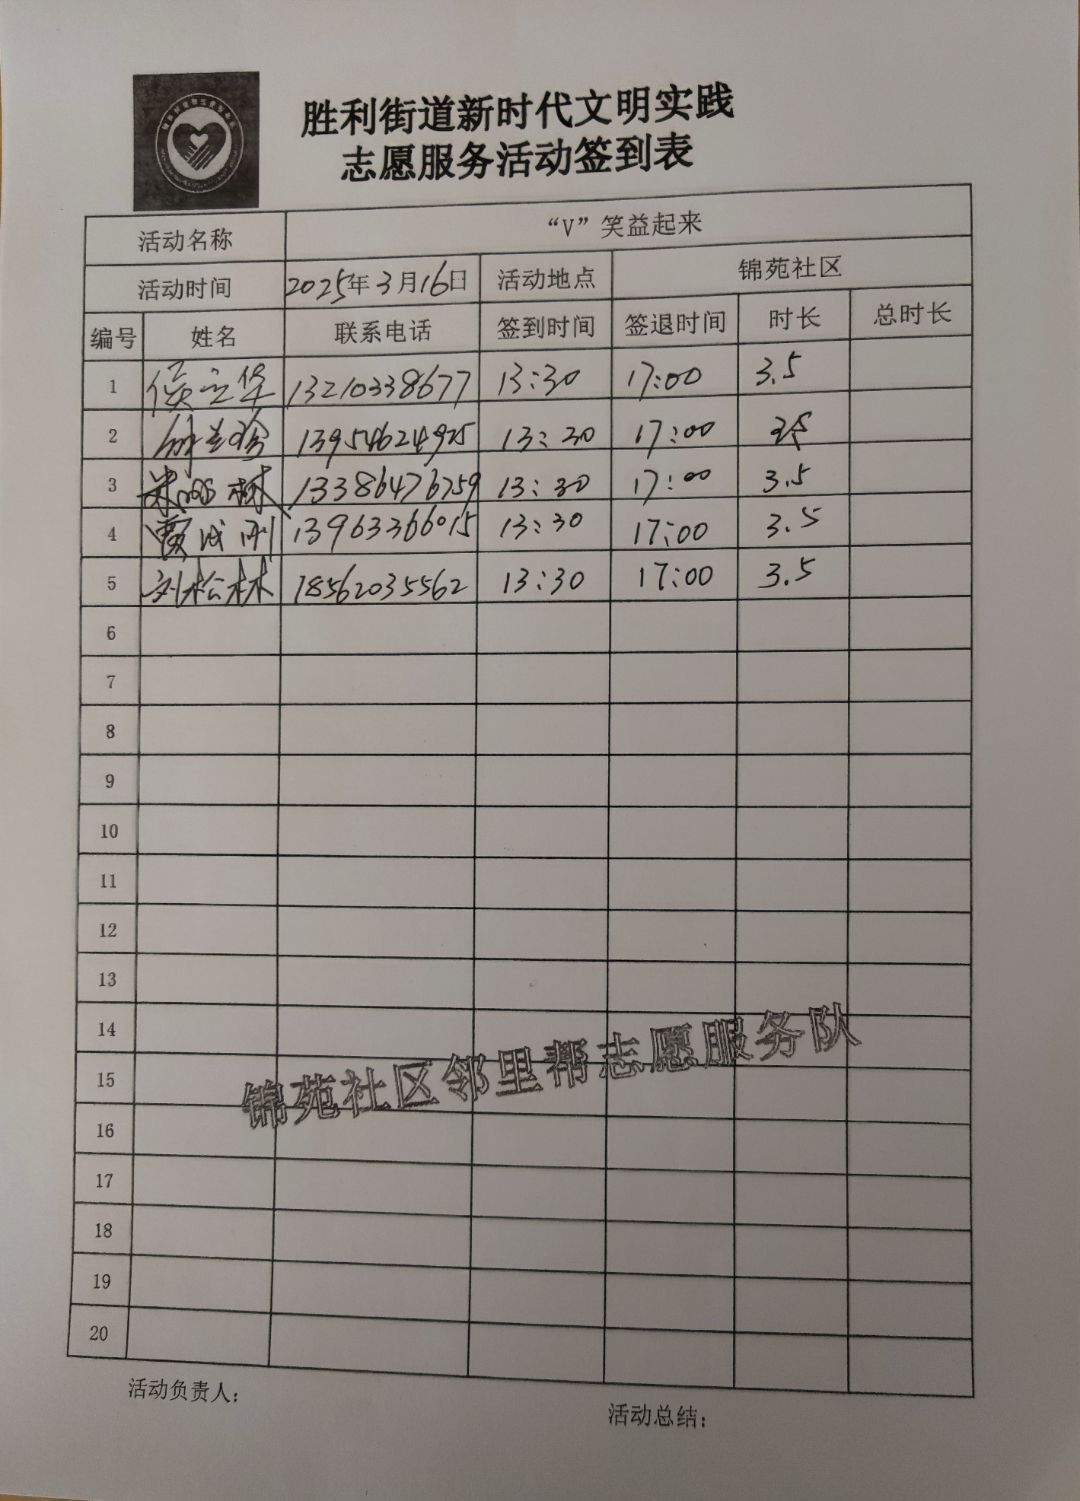 胜利街道新时代文明实践
志愿服务活动签到表
活动名称 “V”笑益起来
活动时间 2025年3月16日 活动地点 锦苑社区
编号 姓名 联系电话 签到时间 签退时间 时长 总时长
1 侯立华 13210338677 13:30 17:00 3.5
2 13954624925 13:30 17:00 3.5
3 13386476759 13:30 17:00 3.5
4 贾成刚 13963366015 13:30 17:00 3.5
5 刘松林 18562035562 13:30 17:00 3.5
6
7
8
9
10
11
12
13
14
15
16
17
18
19
20
锦苑社区邻里帮志愿服务队
活动负责人:
活动总结: